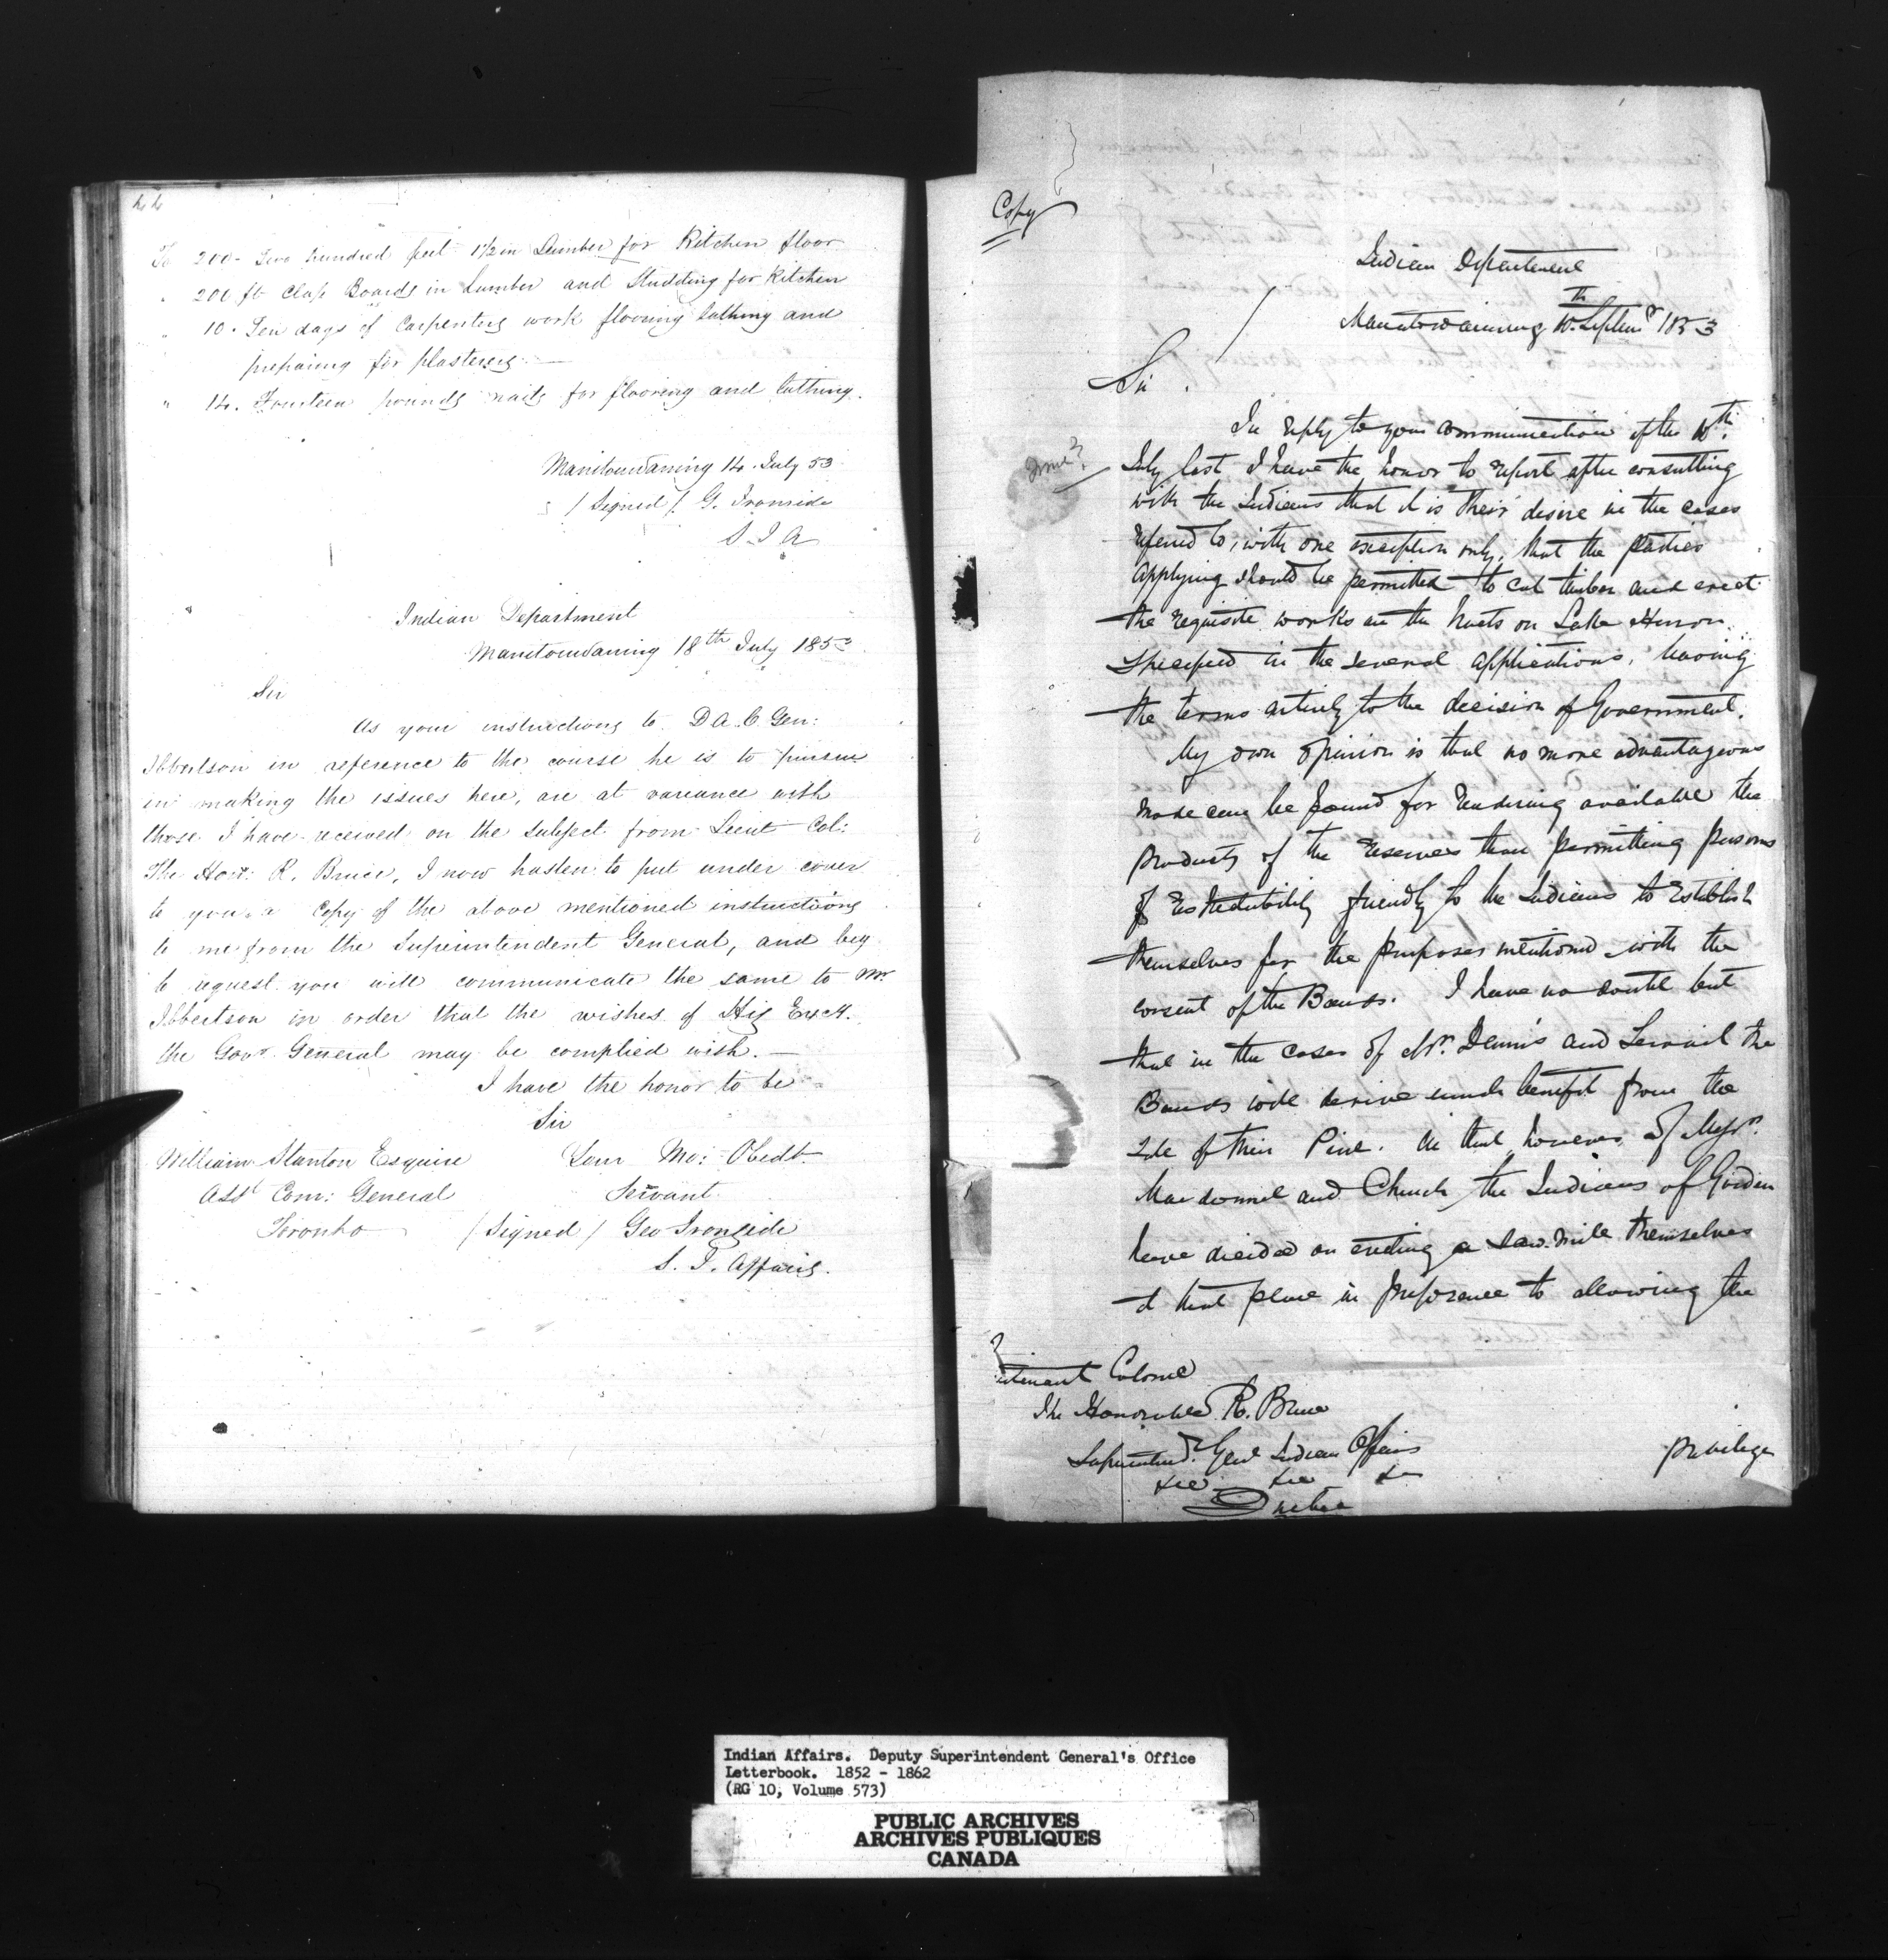 44
To 200 - Two hundred feet 1 1/2 in Lumber for Kitchen floor
" 200 ft Clap Boards in Lumber and Studding for Kitchen
" 10 - Ten days of Carpenters work flooring lathing and
preparing for plasterers -
" 14. Fourteen pounds nails for flooring and lathing.
Manitowaning 14. July 53
/ Signed / G. Ironside
S. I A
Indian Department
Manitowaning 18th July 1853
Sir
As your instructions to D A. C Gen:
Ibbertson in reference to the course he is to pursue
in making the issues here, are at variance with
those I have received on the subject from Lieut Col:
The Honr: R. Bruce, I now hasten to put under cover
to you a Copy of the above mentioned instructions
to me from the Superintendent General, and beg
to request you will communicate the same to Mr
Ibbertson in order that the wishes of His Excy.
the Govr. General may be complied with. —
I have the honor to be
Sir
William Stanton Esquire Your Mo: Obedt.
Asst Com: General Servant
Toronto / Signed / Geo Ironside
S. I. Affairs.
Copy
Indian Department
Manitowaining 10th. Septemr 1853
Sir.
In reply to your communication of the 10th.
June?
July last I have the honor to report after consulting
with the Indians that it is their desire in the cases
referred to, with one exception only, that the parties
applying should be permitted to cut timber and erect
the requisite works on the tracts on Lake Huron
specified in the several applications, leaving
the terms entirely to the decision of Government.
My own opinion is that no more advantageous
mode can be found for rendering available the
products of the reserves than permitting persons
of respectability friendly to the Indians to establish
themselves for the purposes mentioned with the
consent of the Bands. I have no doubt but
that in the cases of Mr. Dennis and the
Bands will derive much benefit from the
sale of their Pine. In that however of Messrs.
Macdonnel and Church the Indians of Garden
have decided on erecting a saw-mill themselves
at that place in preference to allowing the
utenant Colonel
The Honorable R. Bruce
Superintend. Genl Indian Affairs
&c &c &c
Quebec
privilege
Indian Affairs. Deputy Superintendent General's Office
Letterbook. 1852 - 1862
(RG 10, Volume 573)
PUBLIC ARCHIVES
ARCHIVES PUBLIQUES
CANADA